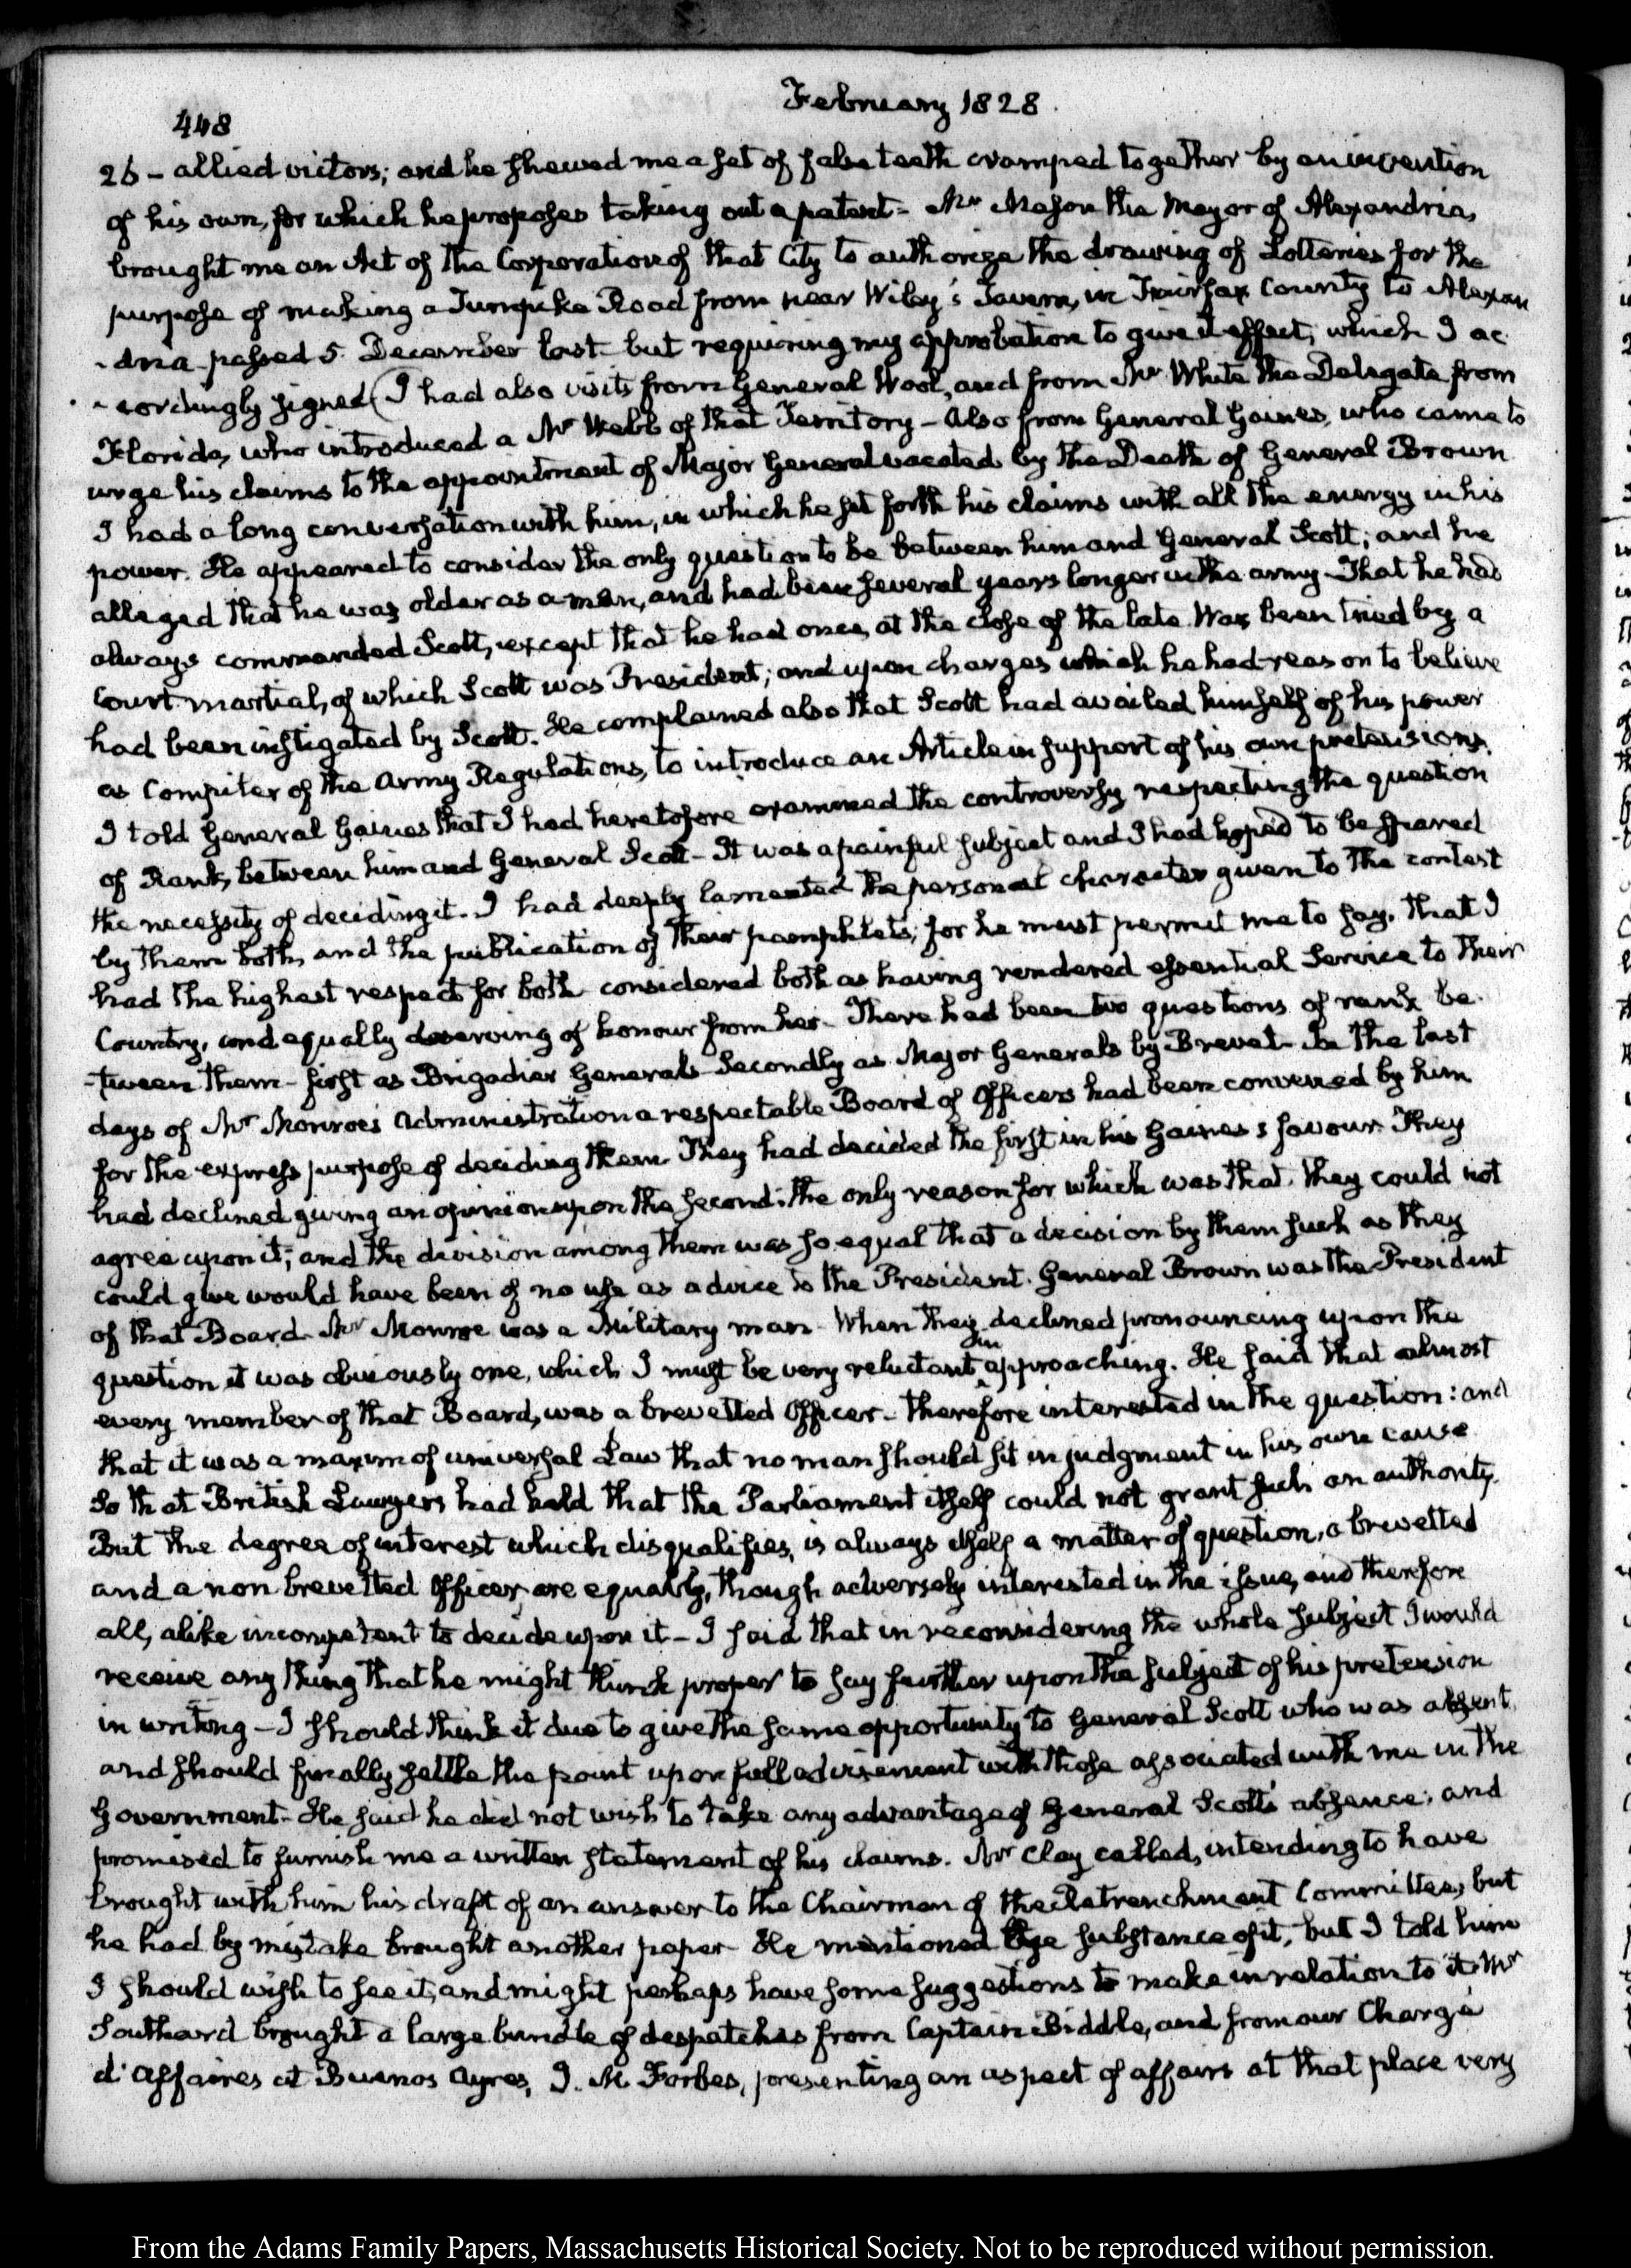 February 1828.
448
26 – allied victors; and he shewed me a set of false teeth cramped together by an invention
of his own, for which he proposes taking out a patent – Mr Mason the Mayor of Alexandria,
brought me an Act of the Corporation of that City to authorize the drawing of Lotteries for the
purpose of making a Turnpike Road from near Wiley's Tavern, in Fairfax County to Alexan
-dria passed 5. December last but requiring my approbation to give it effect, which I ac
-cordingly signed (I had also visits from General Wool, and from Mr White the Delegate from
Florida, who introduced a Mr Webb of that Territory – Also from General Gaines, who came to
urge his claims to the appointment of Major General vacated by the Death of General Brown
I had a long conversation with him, in which he set forth his claims with all the energy in his
power. He appeared to consider the only question to be between him and General Scott; and he
alleged that he was older as a man, and had been several years longer in the army – That he had
always commanded Scott, except that he had once, at the close of the late War been tried by a
Court martial, of which Scott was President; and upon charges which he had reason to believe
had been instigated by Scott. He complained also that Scott had availed himself of his power
as Compiler of the Army Regulations, to introduce an Article in support of his own pretensions.
I told General Gaines that I had heretofore examined the controversy respecting the question
of Rank, between him and General Scott – It was a painful subject and I had hoped to be spared
the necessity of deciding it. I had deeply lamented the personal character given to the contest
by them both, and the publication of their pamphlets; for he must permit me to say, that I
had the highest respect for both considered both as having rendered essential Service to their
Country, and equally deserving of honour from her. There had been two questions of rank be
-tween them – first as Brigadier Generals – Secondly as Major Generals by Brevet – In the last
days of Mr Monroe's Administration a respectable Board of Officers had been convened by him
for the express purpose of deciding them. They had decided the first in his Gaines's favour. They
had declined giving an opinion upon the second; the only reason for which was that they could not
agree upon it; and the division among them was so equal that a decision by them such as they
could give would have been of no use as advice to the President. General Brown was the President
of that Board. Mr Monroe was a Military man – When they declined pronouncing upon the
question it was obviously one, which I must be very reluctant in approaching. He said that almost
every member of that Board, was a brevetted Officer – therefore interested in the question: and
that it was a maxim of universal Law that no man should sit in judgment in his own cause
So that British Lawyers had held that the Parliament itself could not grant such an authority.
But the degree of interest which disqualifies, is always itself a matter of question, a brevetted
and a non brevetted Officer, are equally, though adversely interested in the issue, and therefore
all, alike incompetent to decide upon it – I said that in reconsidering the whole subject I would
receive any thing that he might think proper to say further upon the subject of his pretension
in writing – I should think it due to give the same opportunity to General Scott who was absent,
and should finally settle the point upon full advisement with those associated with me in the
Government – He said he did not wish to take any advantage of General Scott's absence; and
promised to furnish me a written statement of his claims. Mr Clay called, intending to have
brought with him his draft of an answer to the Chairman of the Retrenchment Committee, but
he had by mistake brought another paper – He mentioned the substance of it, but I told him
I should wish to see it, and might perhaps have some suggestions to make in relation to it. Mr
Southard brought a large bundle of despatches from Captain Biddle, and from our Chargé
d'affaires at Buenos Ayres, J. M. Forbes, presenting an aspect of affairs at that place very
From the Adams Family Papers, Massachusetts Historical Society. Not to be reproduced without permission.